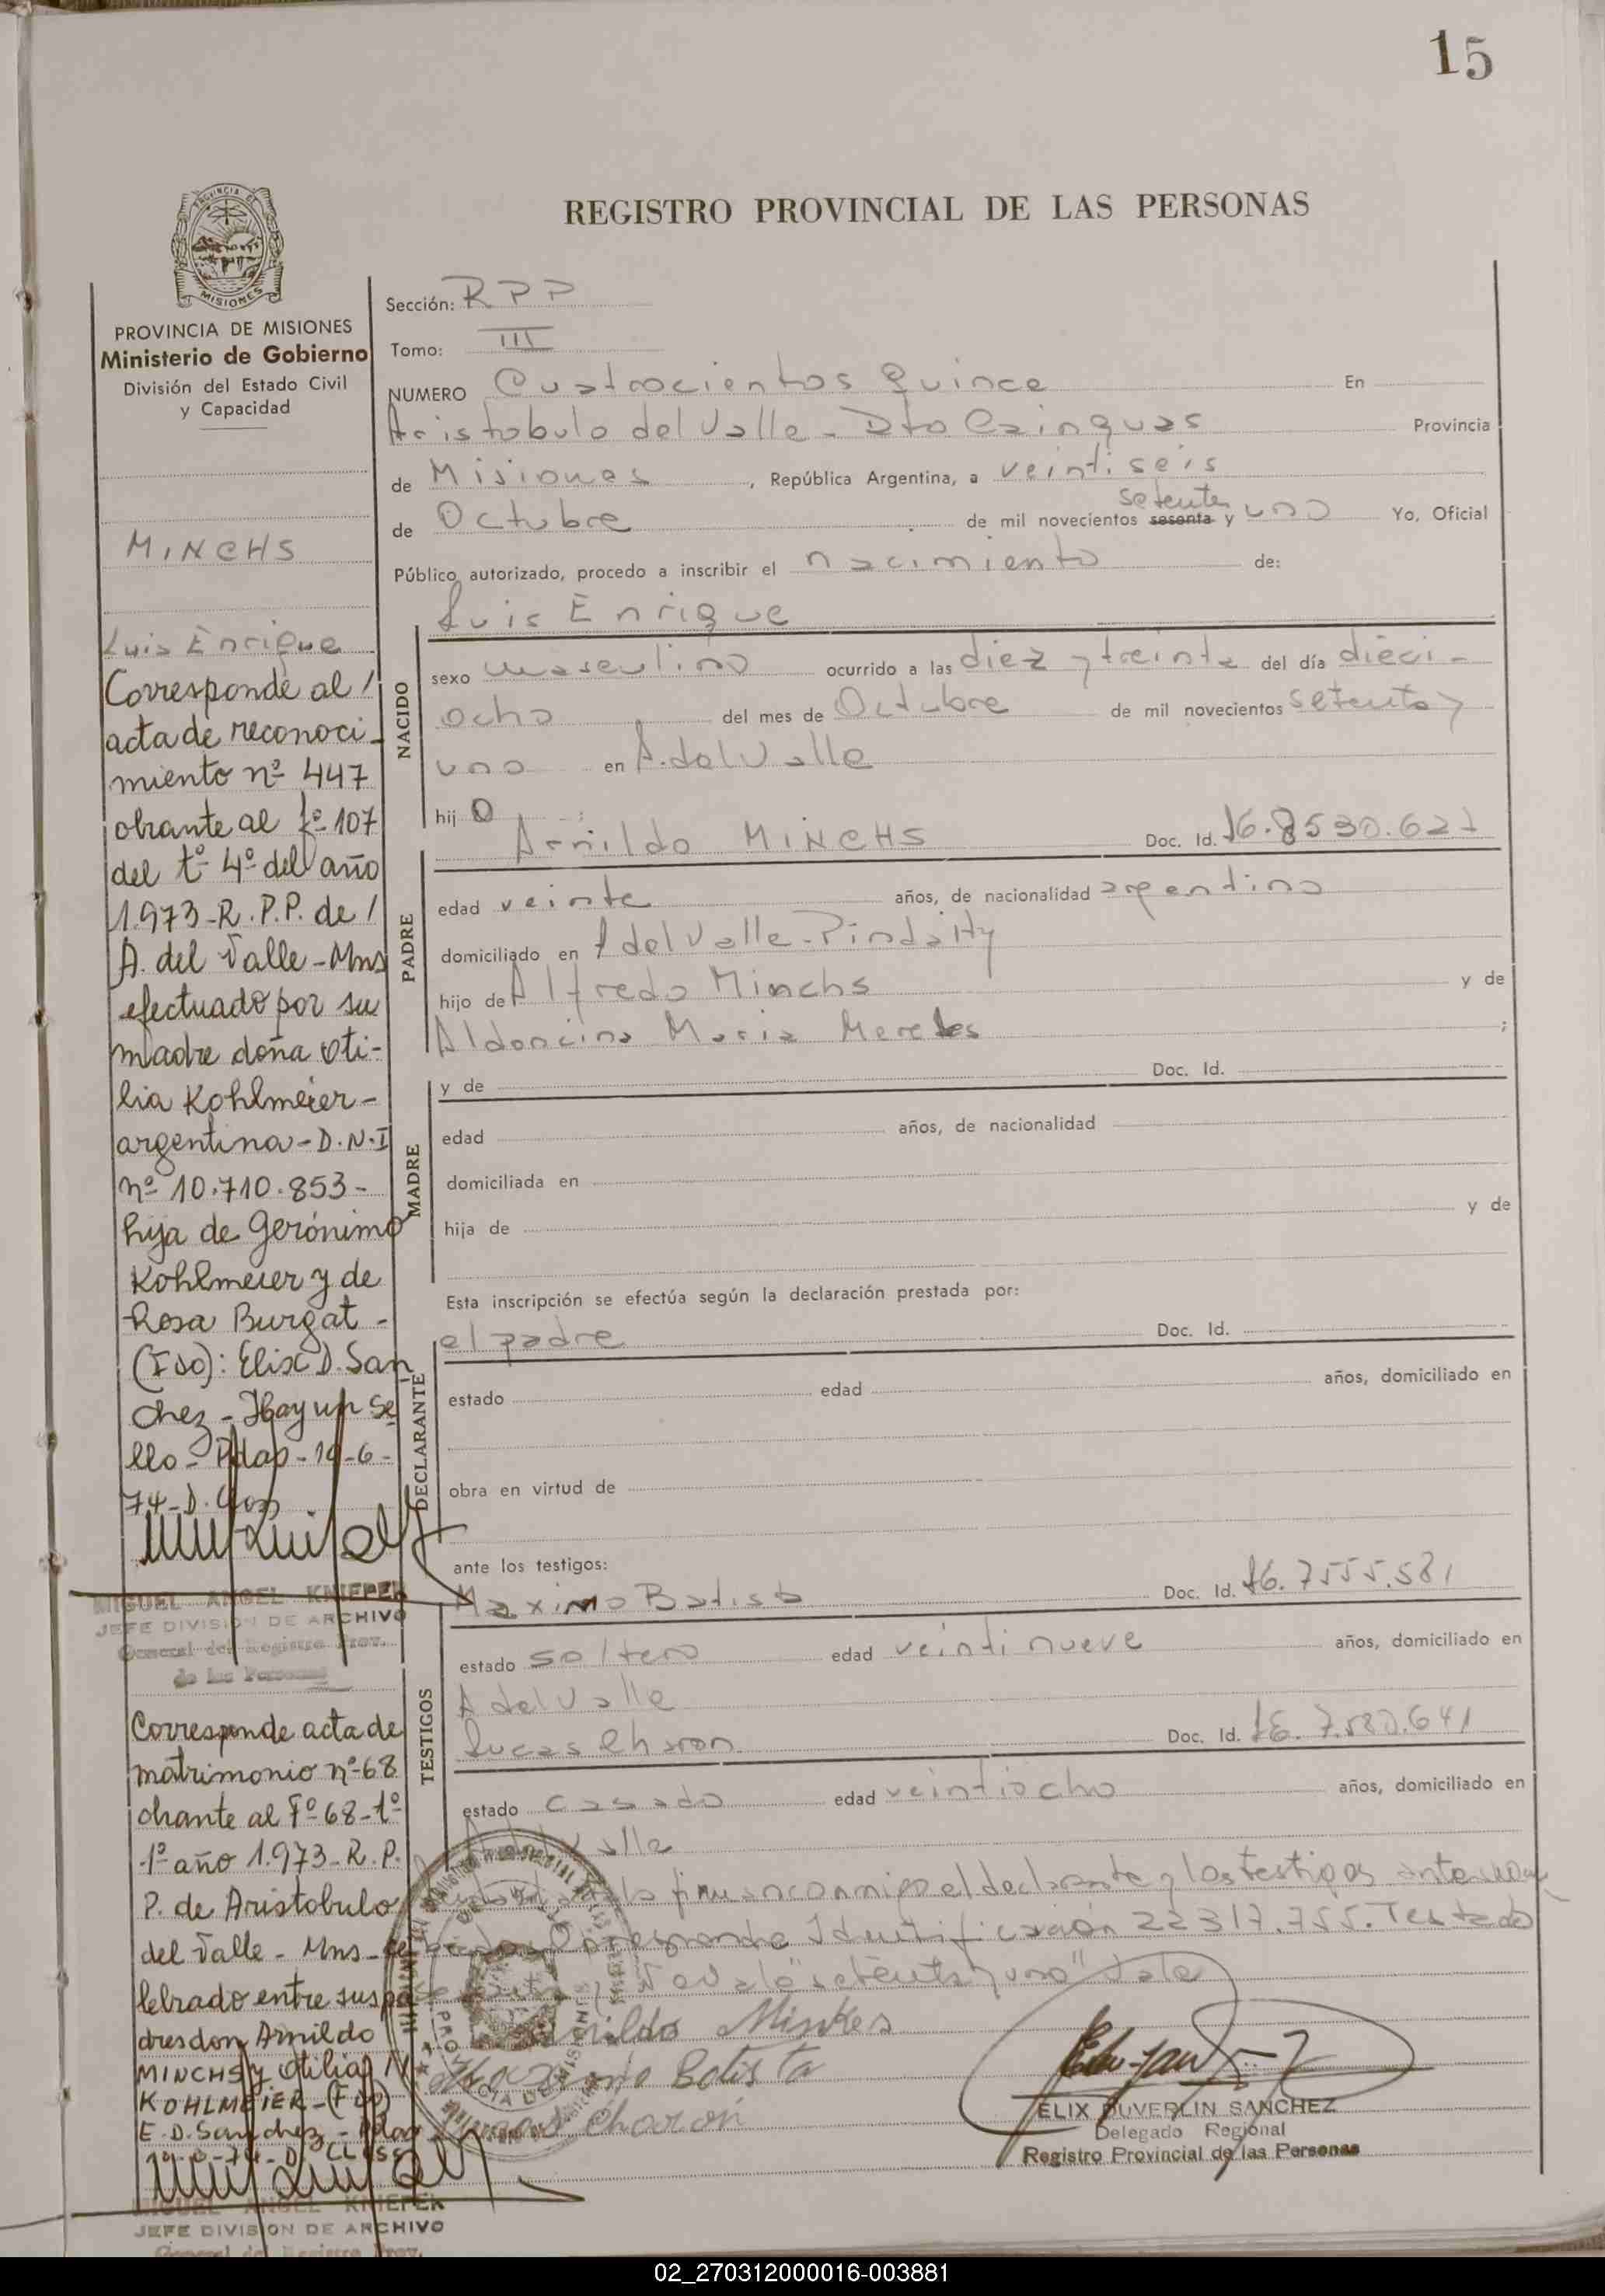 15
REGISTRO PROVINCIAL DE LAS PERSONAS
PROVINCIA DE MISIONES
Ministerio de Gobierno
División del Estado Civil
y Capacidad
MINCHS
Luis Enrique
Corresponde al /
acta de reconoci-
miento nº 447
obrante al fº 107
del tº 4º del año
1.973-R.P.P. de /
A. del Valle-Mns
efectuado por su
madre doña Oti-
lia Kohlmeier-
argentina-D.N.I
nº 10.710.853-
hija de Gerónimo
Kohlmeier y de
Rosa Burgat-
(Fdo): Elix D. San
chez-Hay un se
llo-Pdas-19-6-
74-D.
MIGUEL ANGEL KNIEPER
JEFE DIVISION DE ARCHIVO
General del Registro Prov.
de las Personas
Corresponde acta de
matrimonio nº 68
obrante al Fº 68-tº
1º año 1.973-R.P.
P. de Aristobulo
del Valle-Mns-ce
lebrado entre sus pa
dres don Arnildo
MINCHS y Otilia
KOHLMEIER-(Fdo)
E.D. Sanchez-Pdas
MIGUEL ANGEL KNIEPER
JEFE DIVISION DE ARCHIVO
General del Registro Prov.
Sección: RPP
Tomo: III
NUMERO Cuatrocientos Quince En
Aristobulo del Valle-Dto Cainguas Provincia
de Misiones, República Argentina, a veintiseis
de Octubre de mil novecientos sesenta setenta y uno Yo, Oficial
Público autorizado, procedo a inscribir el nacimiento de:
Luis Enrique
NACIDO
sexo masculino ocurrido a las diez y treinta del día dieci-
ocho del mes de Octubre de mil novecientos setenta y
uno en A.del Valle
hij o
Arnildo MINCHS Doc. Id.
PADRE
edad veinte años, de nacionalidad argentino
domiciliado en A del Valle-Pindaity
hijo de Alfredo Minchs y de
Aldoncina Maria Mereles ;
MADRE
y de Doc. Id.
edad años, de nacionalidad
domiciliada en
hija de y de
Esta inscripción se efectúa según la declaración prestada por:
el padre Doc. Id.
DECLARANTE
estado edad años, domiciliado en
obra en virtud de
ante los testigos:
Maximo Batista Doc. Id. 16.7555.581
TESTIGOS
estado soltero edad veintinueve años, domiciliado en
A del Valle
Lucas Charon Doc. Id. 16.7.580.641
estado casado edad veintiocho años, domiciliado en
A del Valle
firman conmigo el declarante y los testigos
Corresponde Identificación 22317.755. Testado
"setenta y uno" Vale
Arnildo Minkes
Maximo Batista
Lucas Charon
ELIX DUVERLIN SANCHEZ
Delegado Regional
Registro Provincial de las Personas
02_270312000016-003881